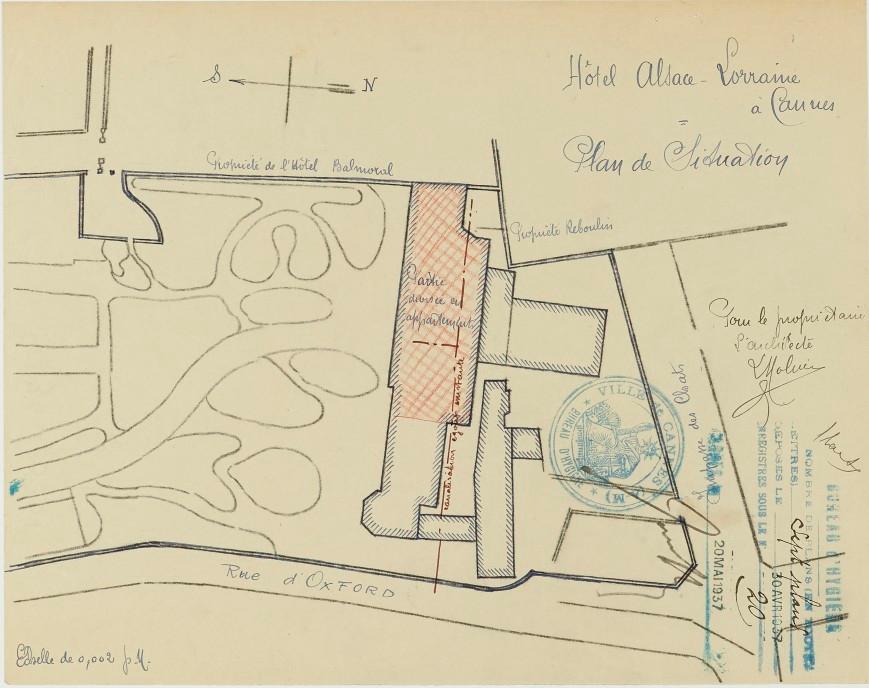 Hôtel Alsace-Lorraine
à Cannes
=
Plan de Situation
S N
Propriété de l'Hôtel Balmoral
Propriété Reboulin
Partie
divisée en
appartements
canalisation égout existante
Pour le propriétaire
L'architecte
VILLE DE CANNES (A.M)
BUREAU D'HYGIÈNE
BUREAU D'HYGIÈNE
NOMBRE DE PLANS (EN TOUTES
LETTRES) Sept plans
DÉPOSÉS LE 30 AVR 1937
ENREGISTRÉS SOUS LE N° 20
20 MAI 1937
Rue d'OXFORD
Echelle de 0,002 p.M.